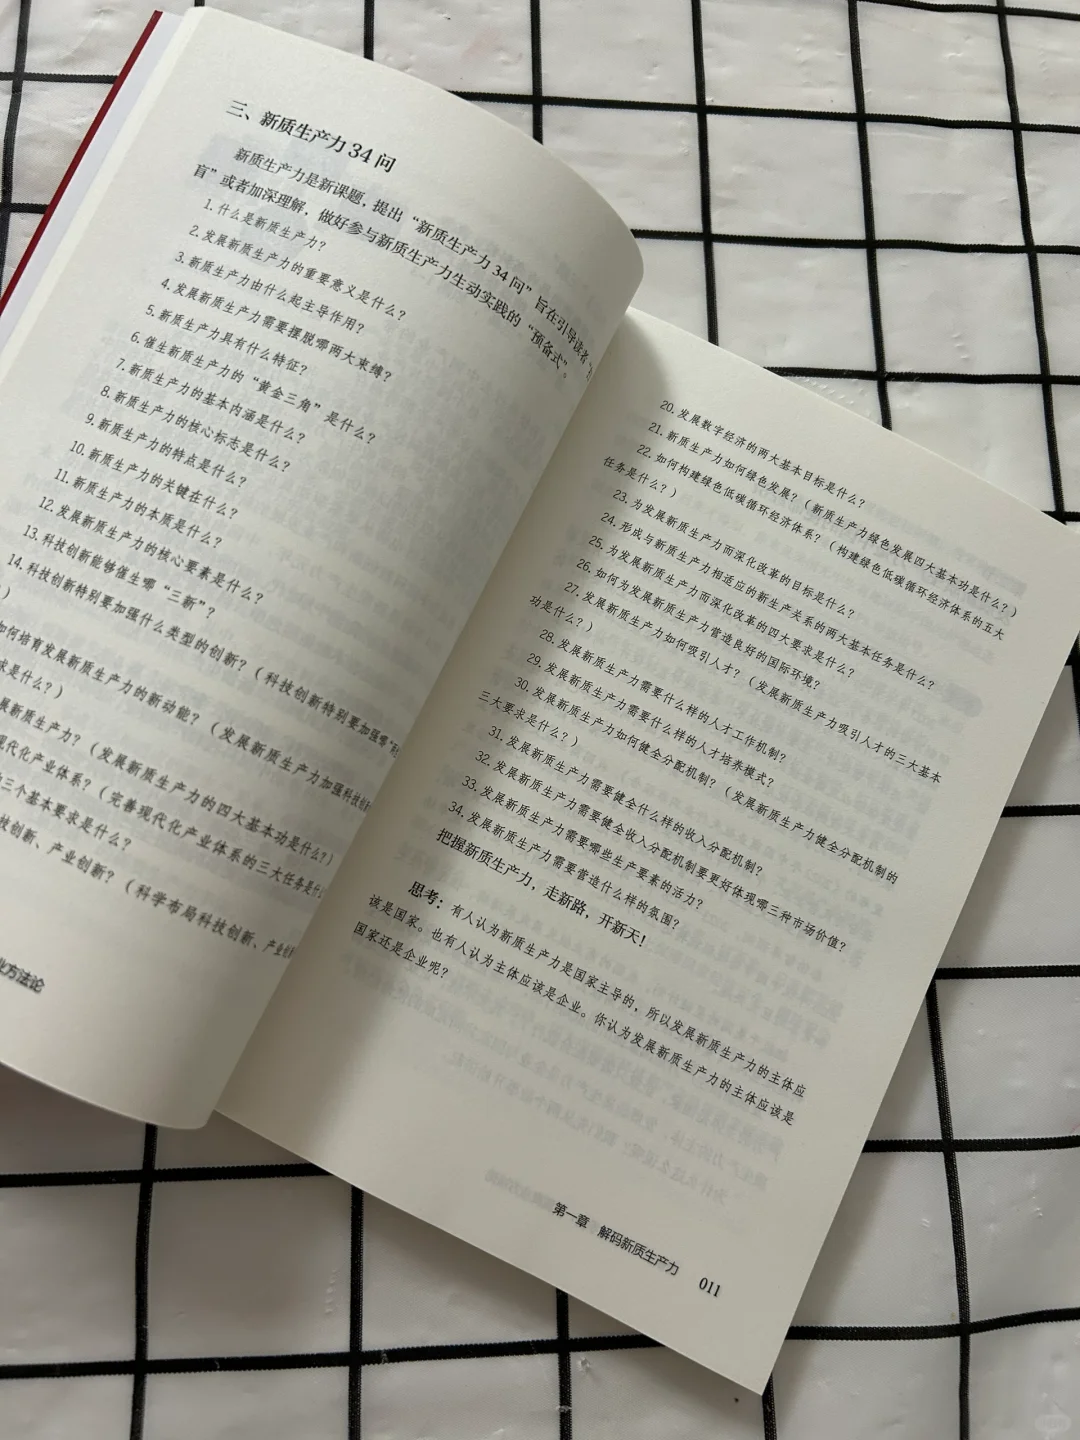 三、新质生产力34问
新质生产力是新课题，提出“新质生产力34问”旨在引导读者“
盲”或者加深理解，做好参与新质生产力生动实践的“预备式”。
1.什么是新质生产力？
2.发展新质生产力的重要意义是什么？
3.新质生产力由什么起主导作用？
4.发展新质生产力需要摆脱哪两大束缚？
5.新质生产力具有什么特征？
6.催生新质生产力的“黄金三角”是什么？
7.新质生产力的基本内涵是什么？
8.新质生产力的核心标志是什么？
9.新质生产力的特点是什么？
10.新质生产力的关键在什么？
11.新质生产力的本质是什么？
12.发展新质生产力的核心要素是什么？
13.科技创新能够催生哪“三新”？
14.科技创新特别要加强什么类型的创新？（科技创新特别要加强哪“
）
如何培育发展新质生产力的新动能？（发展新质生产力加强科技创新
求是什么？）
展新质生产力？（发展新质生产力的四大基本功是什么？）
现代化产业体系？（完善现代化产业体系的三大任务是什
三个基本要求是什么？
技创新、产业创新？（科学布局科技创新、产业创
业方法论
20.发展数字经济的两大基本目标是什么？
21.新质生产力如何绿色发展？（新质生产力绿色发展四大基本功是什么？）
22.如何构建绿色低碳循环经济体系？（构建绿色低碳循环经济体系的五大
任务是什么？）
23.为发展新质生产力而深化改革的目标是什么？
24.形成与新质生产力相适应的新生产关系的两大基本任务是什么？
25.为发展新质生产力而深化改革的四大要求是什么？
26.如何为发展新质生产力营造良好的国际环境？
27.发展新质生产力如何吸引人才？（发展新质生产力吸引人才的三大基本
功是什么？）
28.发展新质生产力需要什么样的人才工作机制？
29.发展新质生产力需要什么样的人才培养模式？
30.发展新质生产力如何健全分配机制？（发展新质生产力健全分配机制的
三大要求是什么？）
31.发展新质生产力需要健全什么样的收入分配机制？
32.发展新质生产力需要健全收入分配机制要更好体现哪三种市场价值？
33.发展新质生产力需要哪些生产要素的活力？
34.发展新质生产力需要营造什么样的氛围？
把握新质生产力，走新路，开新天！
思考：有人认为新质生产力是国家主导的，所以发展新质生产力的主体应
该是国家。也有人认为主体应该是企业。你认为发展新质生产力的主体应该是
国家还是企业呢？
第一章 解码新质生产力 011